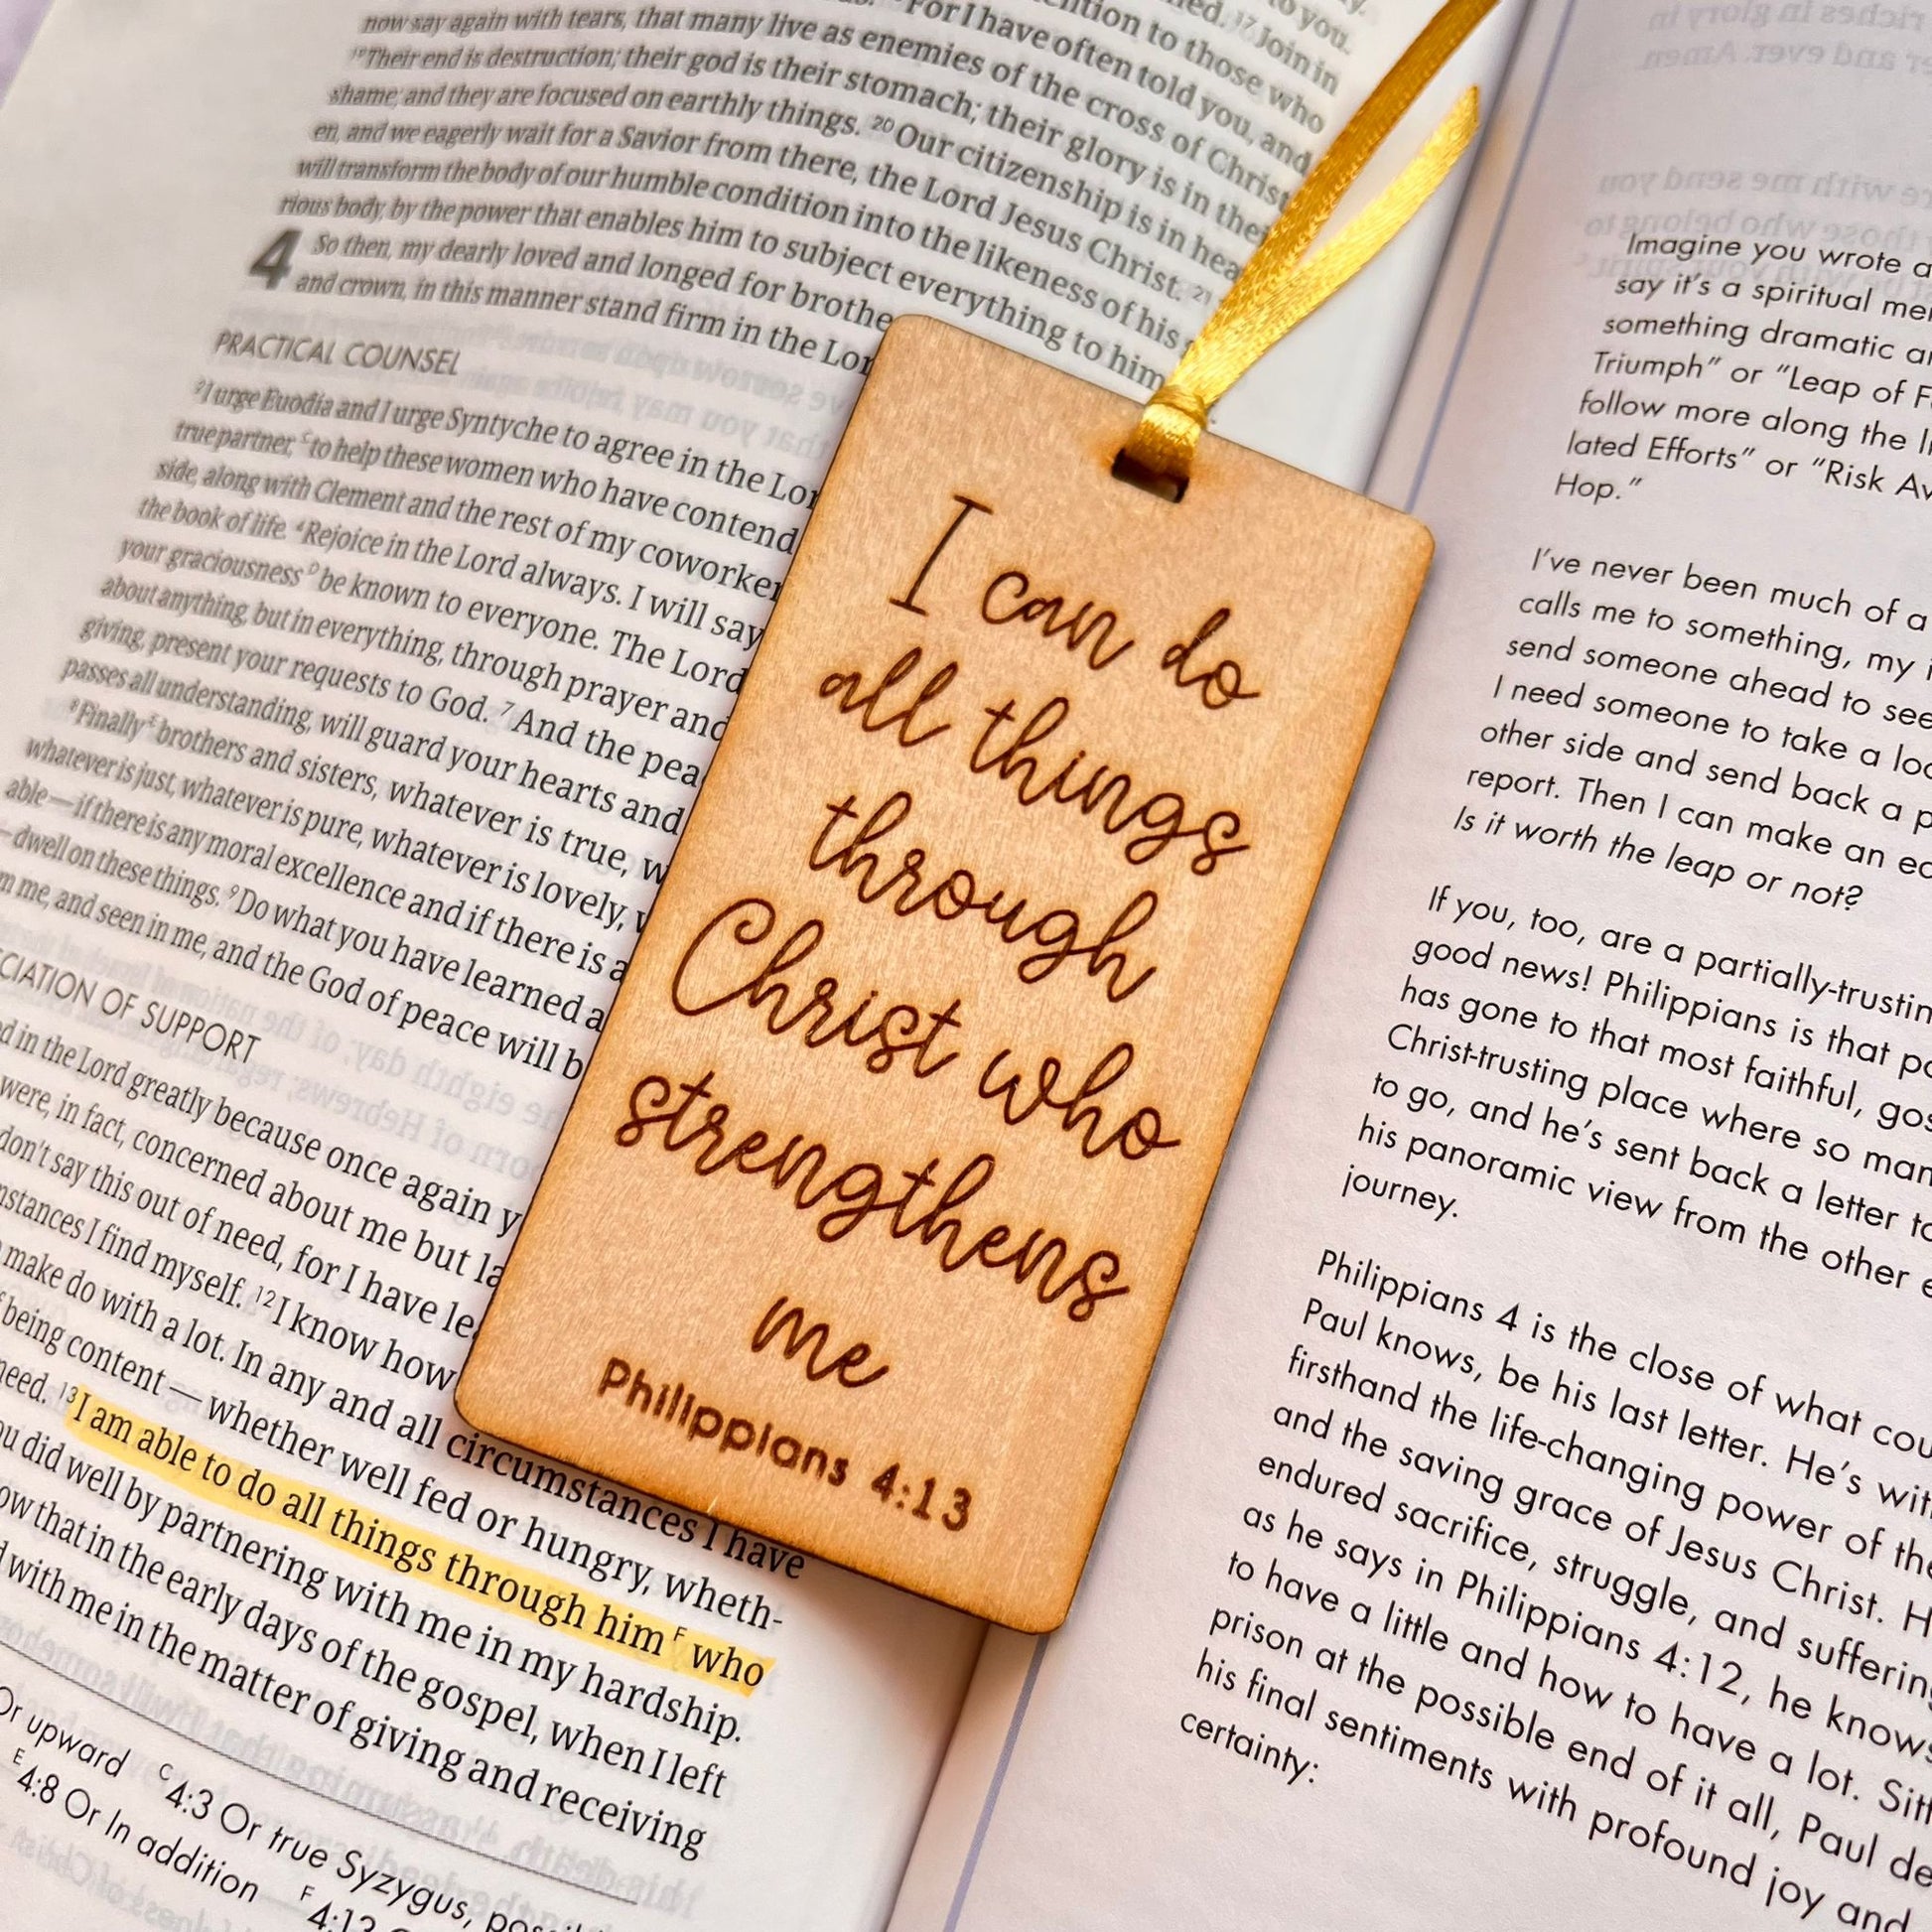 to you.
tention to those who
ned. 17 Join in
For I have often told you, and
now say again with tears, that many live as enemies of the cross of Christ
19 Their end is destruction; their god is their stomach; their glory is in their
shame; and they are focused on earthly things. 20 Our citizenship is in hea
en, and we eagerly wait for a Savior from there, the Lord Jesus Christ. 21
will transform the body of our humble condition into the likeness of his
rious body, by the power that enables him to subject everything to him
4 So then, my dearly loved and longed for brothe
and crown, in this manner stand firm in the Lor
PRACTICAL COUNSEL
2 I urge Euodia and I urge Syntyche to agree in the Lor
true partner, C to help these women who have contend
side, along with Clement and the rest of my coworker
the book of life. 4 Rejoice in the Lord always. I will say
your graciousness D be known to everyone. The Lord
about anything, but in everything, through prayer and
giving, present your requests to God. 7 And the pea
passes all understanding, will guard your hearts and
8 Finally E brothers and sisters, whatever is true, w
whatever is just, whatever is pure, whatever is lovely, w
able — if there is any moral excellence and if there is a
— dwell on these things. 9 Do what you have learned a
m me, and seen in me, and the God of peace will b
CIATION OF SUPPORT
d in the Lord greatly because once again y
were, in fact, concerned about me but la
don't say this out of need, for I have le
nstances I find myself. 12 I know how
make do with a lot. In any and all circumstances I have
f being content — whether well fed or hungry, wheth-
need. 13 I am able to do all things through him F who
ou did well by partnering with me in my hardship.
ow that in the early days of the gospel, when I left
d with me in the matter of giving and receiving
Or upward C 4:3 Or true Syzygus, possibl
E 4:8 Or In addition F 4:13
I can do
all things
through
Christ who
strengthens
me
Philippians 4:13
Imagine you wrote a
say it's a spiritual me
something dramatic a
Triumph" or "Leap of F
follow more along the l
lated Efforts" or "Risk Av
Hop."
I've never been much of a
calls me to something, my
send someone ahead to see
I need someone to take a loo
other side and send back a p
report. Then I can make an ed
Is it worth the leap or not?
If you, too, are a partially-trustin
good news! Philippians is that po
has gone to that most faithful, gos
Christ-trusting place where so man
to go, and he's sent back a letter to
his panoramic view from the other e
journey.
Philippians 4 is the close of what cou
Paul knows, be his last letter. He's wit
firsthand the life-changing power of the
and the saving grace of Jesus Christ. H
endured sacrifice, struggle, and suffering
as he says in Philippians 4:12, he knows
to have a little and how to have a lot. Sitt
prison at the possible end of it all, Paul de
his final sentiments with profound joy and
certainty: